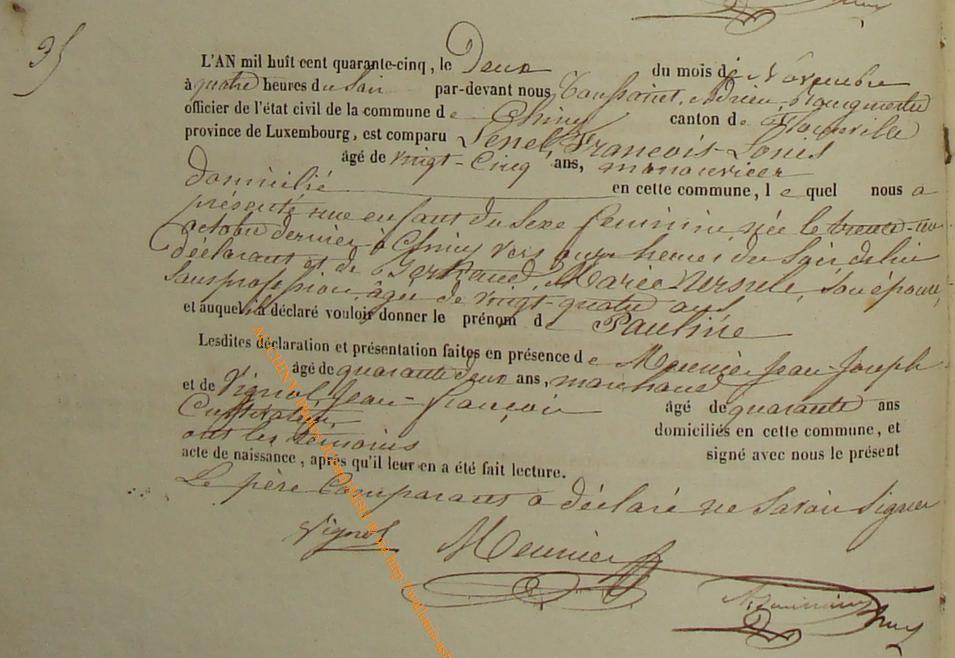 35
L'AN mil huit cent quarante-cinq, le Deux du mois de Novembre
à quatre heures du Soir par-devant nous Toussaint, Adrien,
officier de l'état civil de la commune de Chiny canton de Florenville
province de Luxembourg, est comparu Lenel François-Louis
âgé de vingt-Cinq ans, manouvrier
domicilié en cette commune, lequel nous a
présenté une enfant du Sexe féminin, née le trente-un
octobre dernier à Chiny vers onze heures du Soir de lui
déclarant et de Gerhand, Marie Ursule, Son épouse,
Sans profession, âgée de vingt-quatre ans
et auquel il a déclaré vouloir donner le prénom de Pauline
Lesdites déclaration et présentation faites en présence de Meunier Jean-Joseph
âgé de quarante deux ans, marchand
et de Vignol Jean-françois âgé de quarante ans
Cultivateur, domiciliés en cette commune, et
ont les témoins signé avec nous le présent
acte de naissance, après qu'il leur en a été fait lecture.
Le père Comparant a déclaré ne Savoir Signer
Vignol Meunier